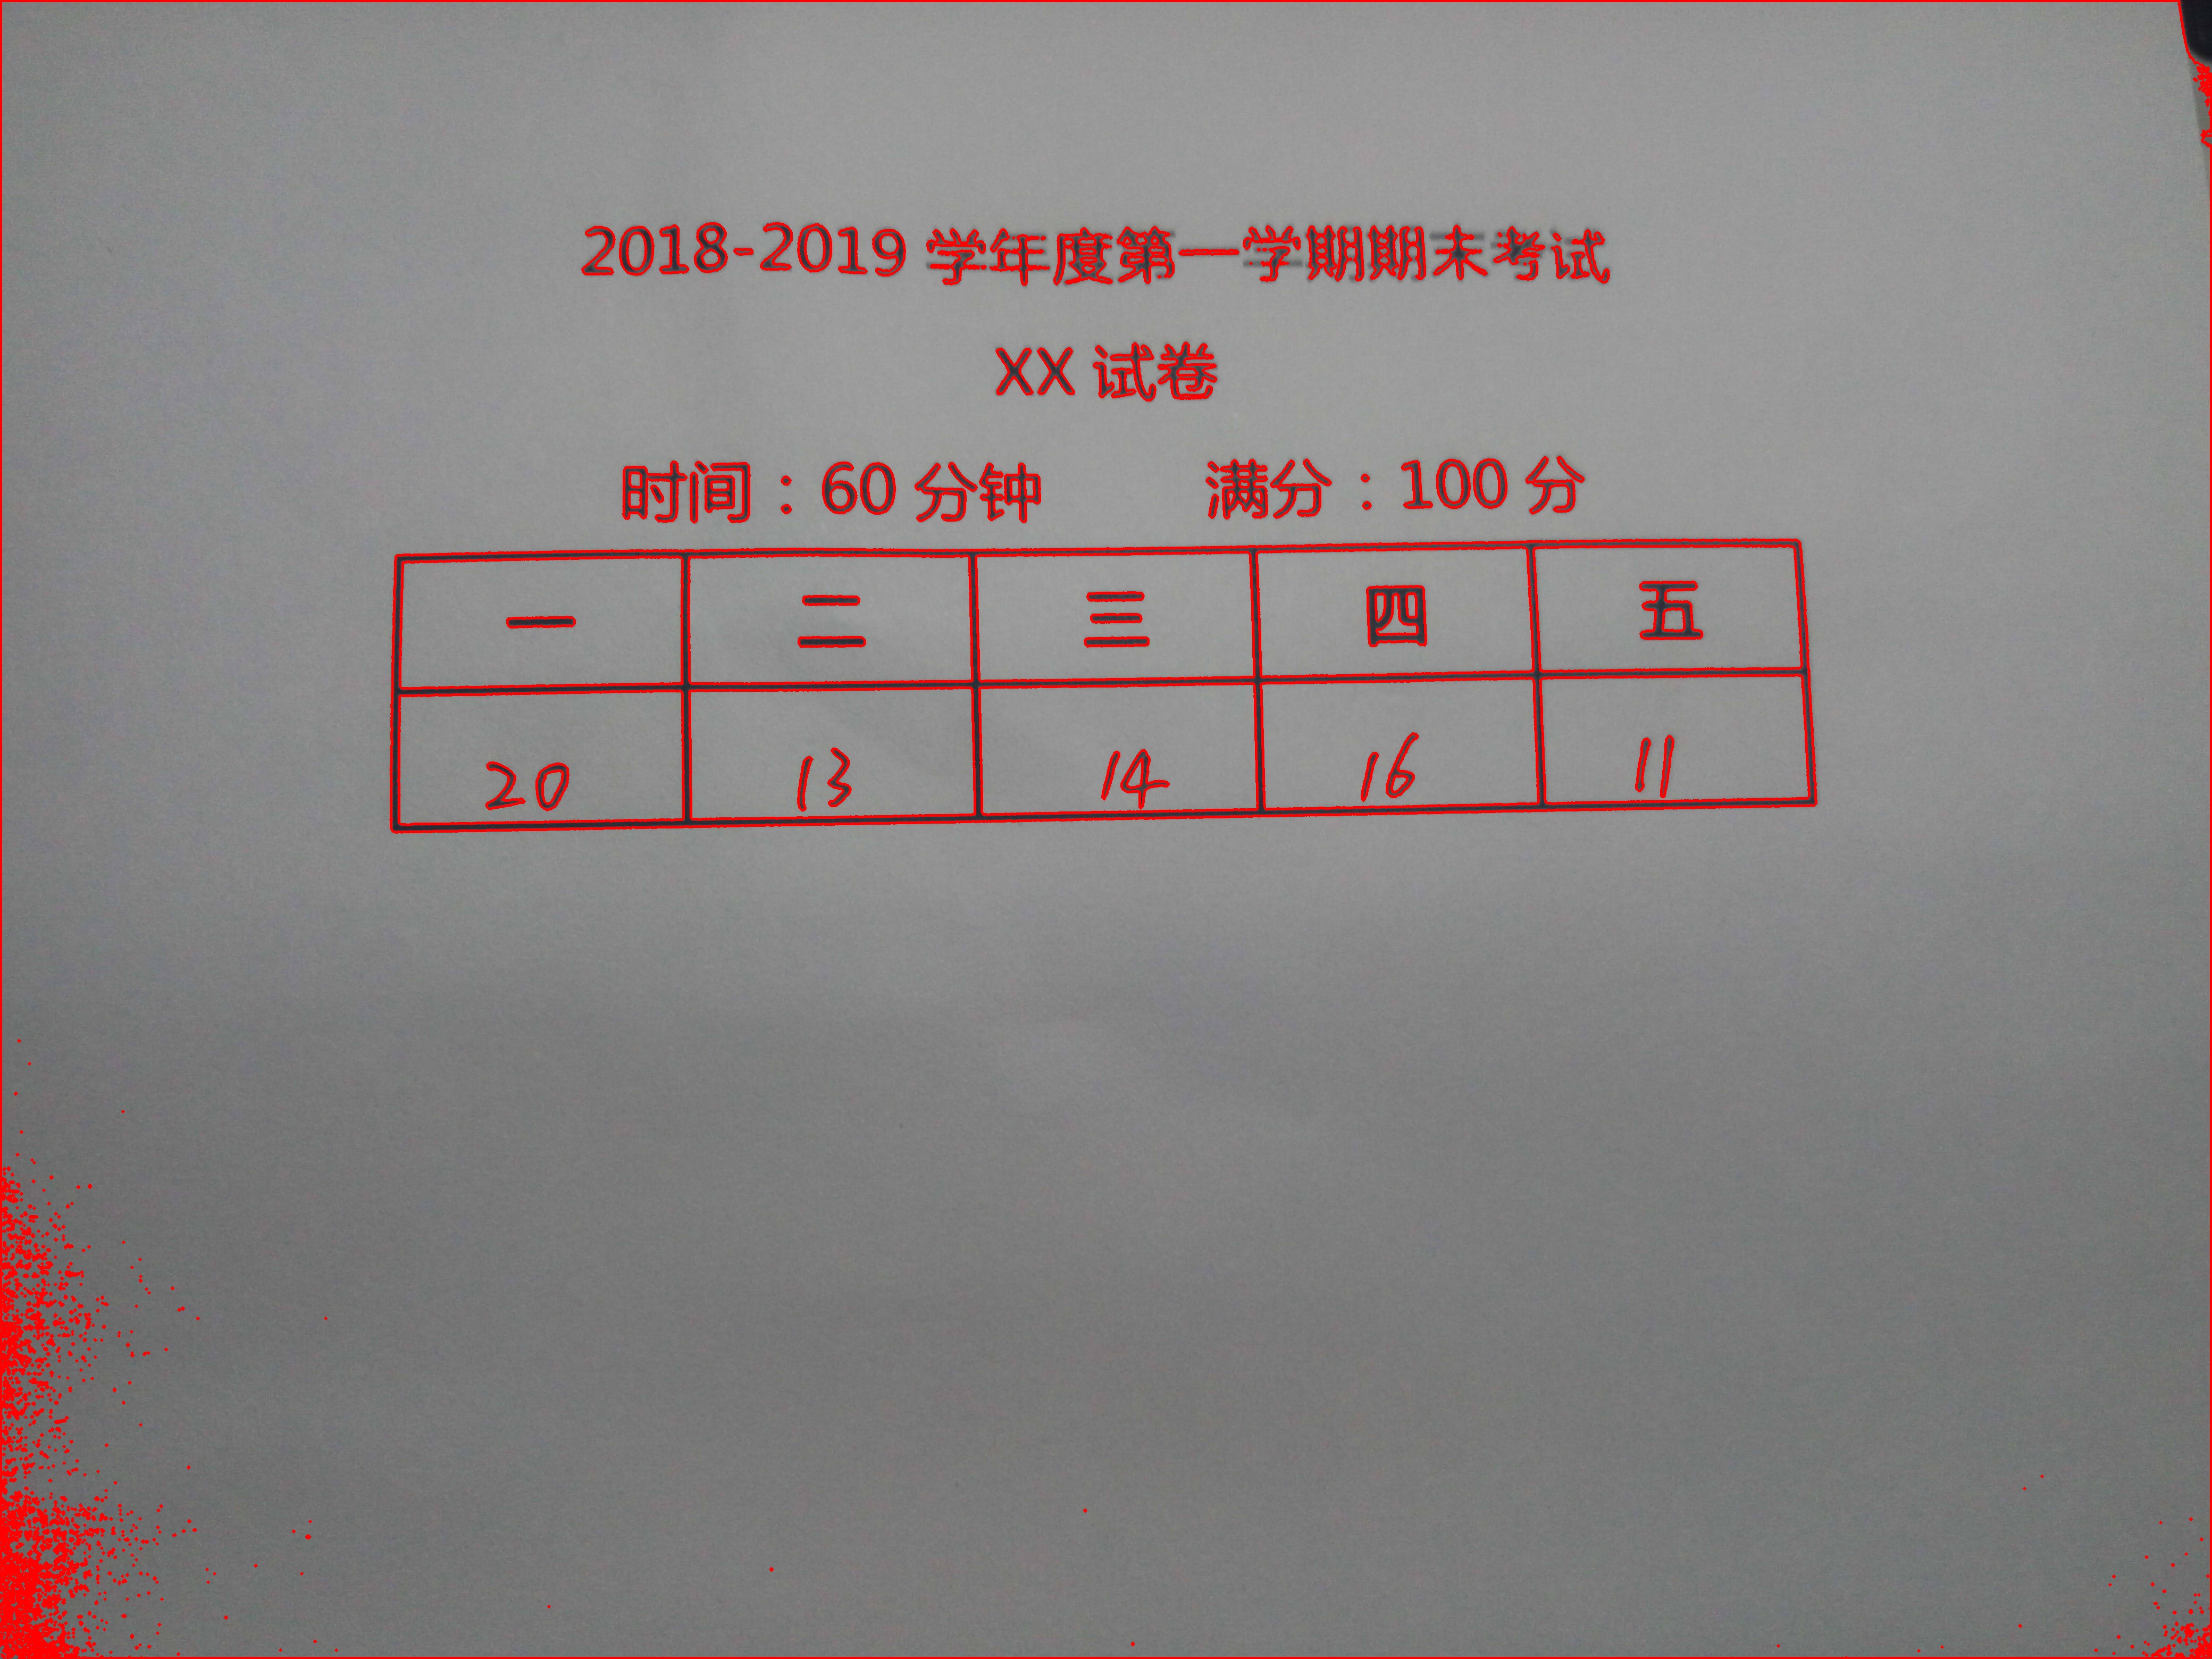 2018-2019 学年度第一学期期末考试
XX 试卷
时间：60 分钟 满分：100 分
一 二 三 四 五
20 13 14 16 11